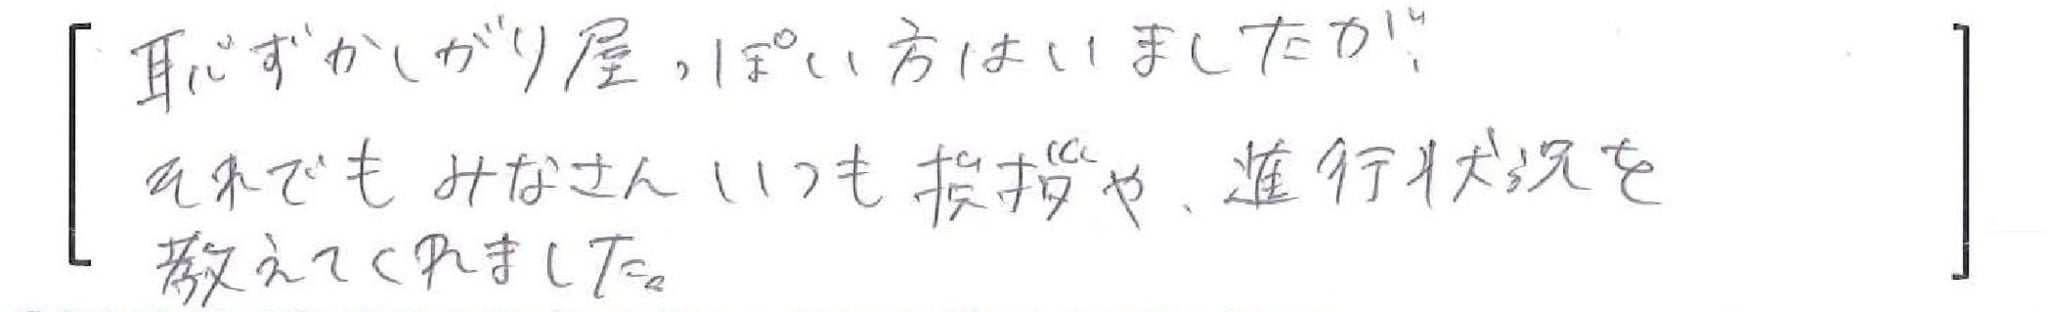 恥ずかしがり屋っぽい方はいましたが、
それでもみなさんいつも挨拶や、進行状況を
教えてくれました。